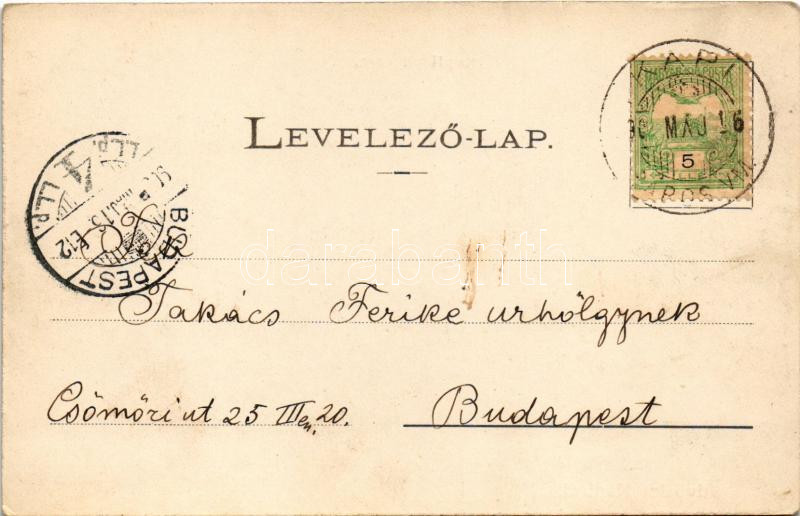 LEVELEZŐ-LAP.
KAPI
MÁJ 16
5
BUDAPEST
Takács Ferike urhölgynek
Csömöri ut 25 III em. 20.
Budapest
darabanth